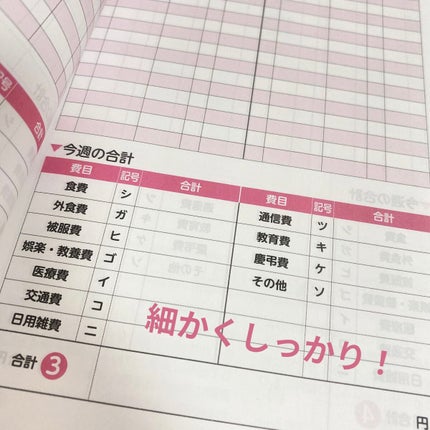 記号
合
▼今週の合計
費目 記号 合計 費目 記号 合計
食費 シ 通信費 ツ
外食費 ガ 教育費 キ
被服費 ヒ 慶弔費 ケ
娯楽・教養費 ゴ その他 ソ
医療費 イ
交通費 コ
日用雑費 ニ
細かくしっかり！
合計 ❸ 円